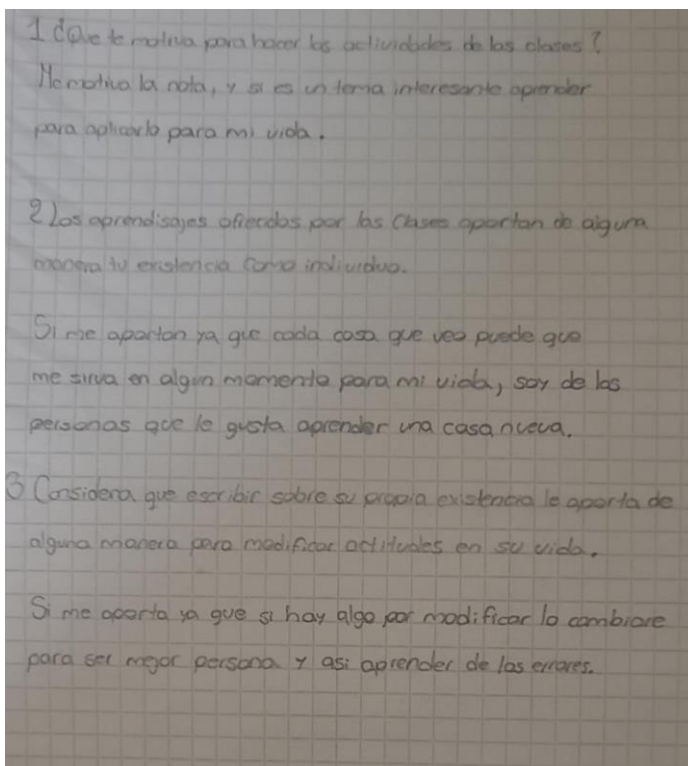 1 ¿Que te motiva para hacer las actividades de las clases?
Me motiva la nota, y si es un tema interesante aprender
para aplicarlo para mi vida.
2 Los aprendisajes ofrecidos por las Clases aportan de alguna
manera tu existencia como individuo.
Si me aportan ya que cada cosa que veo puede que
me sirva en algun momento para mi vida, soy de las
personas que le gusta aprender una cosa nueva.
3 Considera que escribir sobre su propia existencia le aporta de
alguna manera para modificar actitudes en su vida.
Si me aporta ya que si hay algo por modificar lo cambiare
para ser mejor persona y asi aprender de los errores.